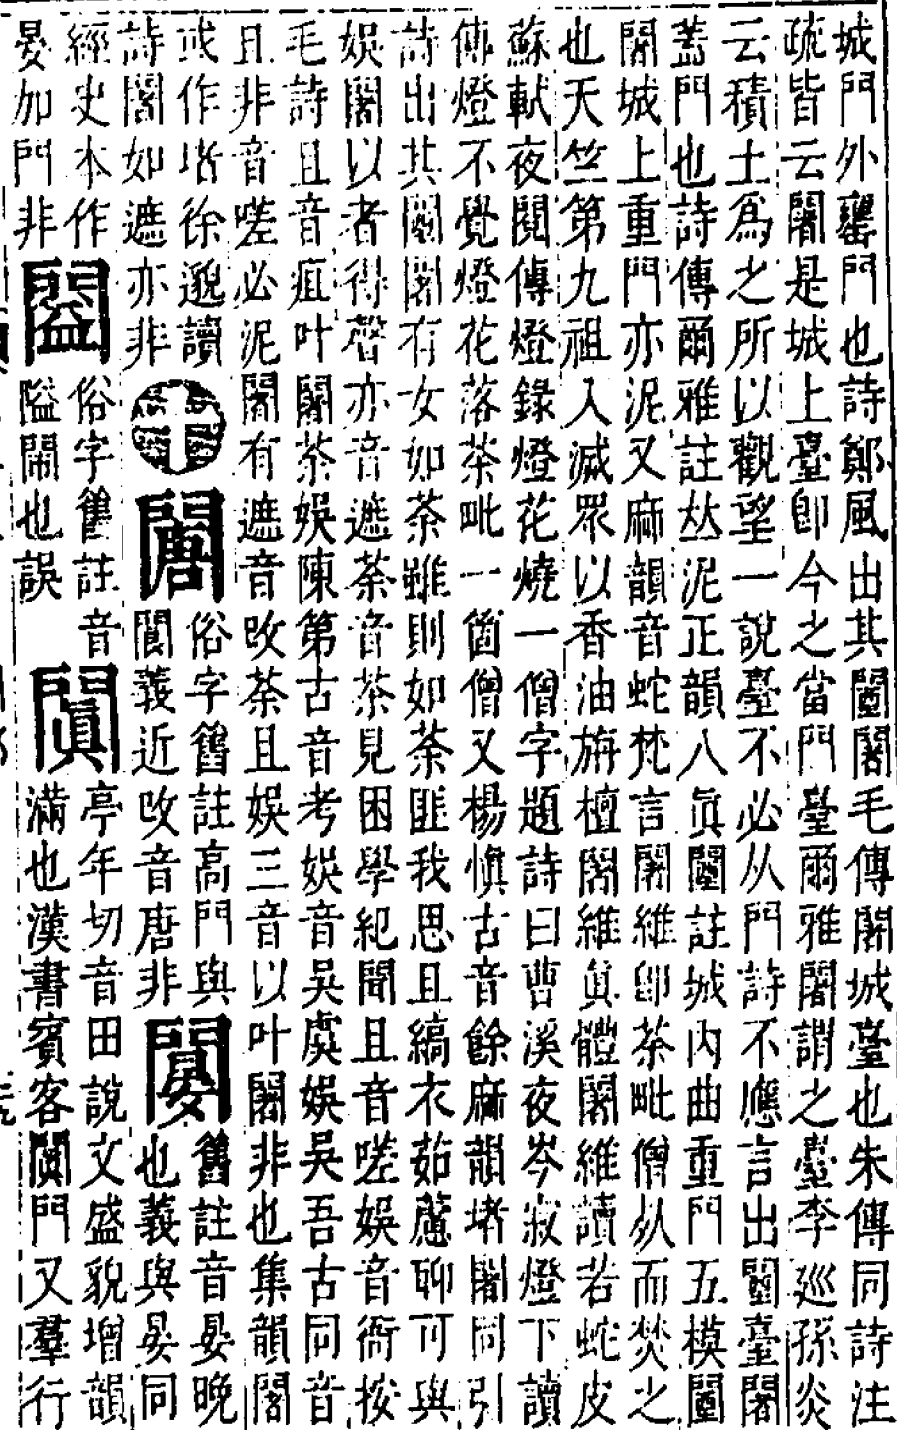 城門外罋門也詩鄭風出其闉闍毛傳闍城臺也朱傳同詩注
疏皆云闍是城上臺卽今之當門臺爾雅闍謂之臺李巡孫炎
云積土爲之所以觀望一說臺不必从門詩不應言出闉臺闍
葢門也詩傳爾雅註𠀤泥正韻八眞闉註城內曲重門五模闉
闍城上重門亦泥又麻韻音蛇梵言闍維卽茶毗僧从而焚之
也天竺第九祖入滅眾以香油旃檀闍維眞體闍維讀若蛇皮
蘇軾夜閱傳燈錄燈花燒一僧字題詩曰曹溪夜岑寂燈下讀
傳燈不覺燈花落茶毗一箇僧又楊愼古音餘麻韻堵闍同引
詩出其闉闍有女如荼雖則如荼匪我思且縞衣茹藘聊可與
娛闍以者得聲亦音遮荼音茶見困學紀聞且音嗟娛音衙按
毛詩且音疽叶闍荼娛陳第古音考娛音吳虞娛吳吾古同音
且非音嗟必泥闍有遮音改荼且娛三音以叶闍非也集韻闍
或作堵徐邈讀
詩闍如遮亦非
十
𨶈
俗字舊註高門與
閬義近改音唐非
𨵿
舊註音晏晚
也義與晏同
經史本作
晏加門非
𨶂
俗字舊註音
隘鬧也誤
闐
亭年切音田說文盛貌增韻
滿也漢書賓客闐門又羣行